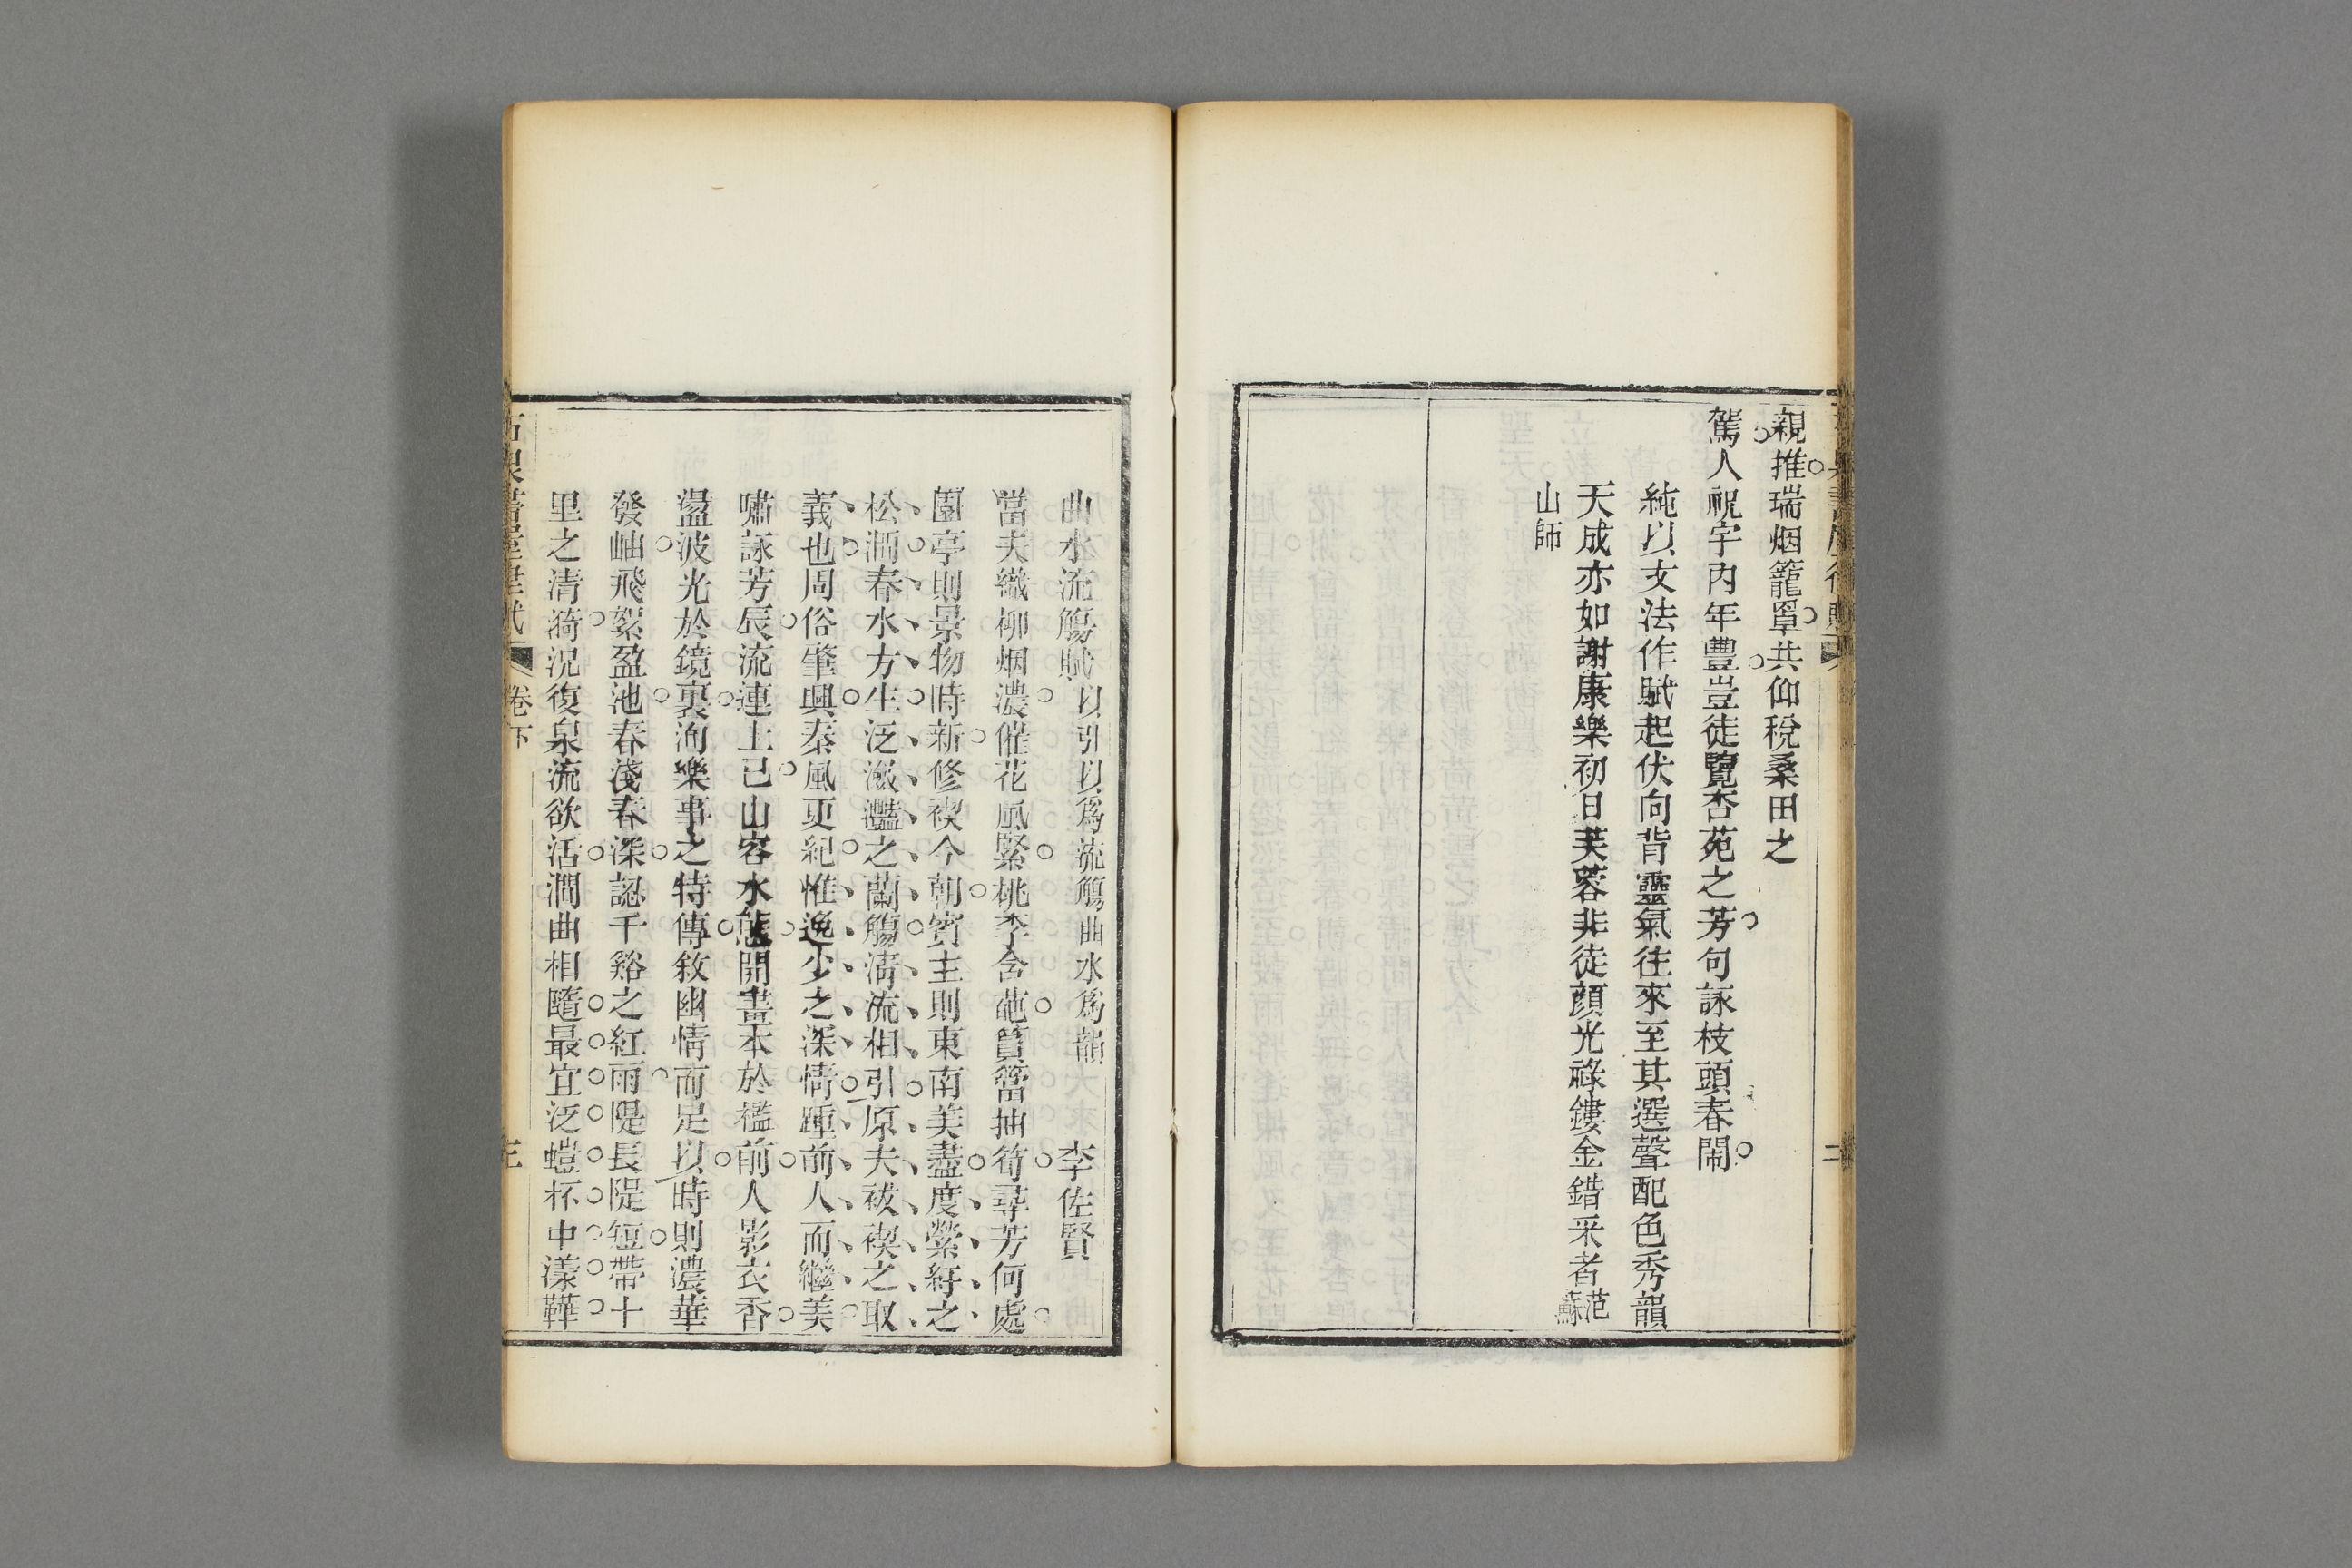 親推瑞烟籠罩共仰稅桑田之
駕人祝宇內年豐豈徒覽杏苑之芳句詠枝頭春閙
純以文法作賦起伏向背靈氣往來至其選聲配色秀韻
天成亦如謝康樂初日芙蓉非徒顏光祿鏤金錯采者范蘇
山師
曲水流觴賦以引以爲流觴曲水爲韻 李佐賢
當夫織柳烟濃催花風緊桃李含葩篔簹抽筍尋芳何處
園亭則景物時新修禊今朝賓主則東南美盡度縈紆之
松澗春水方生泛瀲灩之蘭觴淸流相引原夫祓禊之取
義也周俗肇興秦風更紀惟逸少之深情踵前人而繼美
嘯詠芳辰流連上巳山容水態開畫本於檻前人影衣香
盪波光於鏡裏洵樂事之特傳敘幽情而足以時則濃華
發岫飛絮盈池春淺春深認千谿之紅雨隄長隄短帶十
里之清漪況復泉流欲活澗曲相隨最宜泛螘杯中漾鞾
卷下